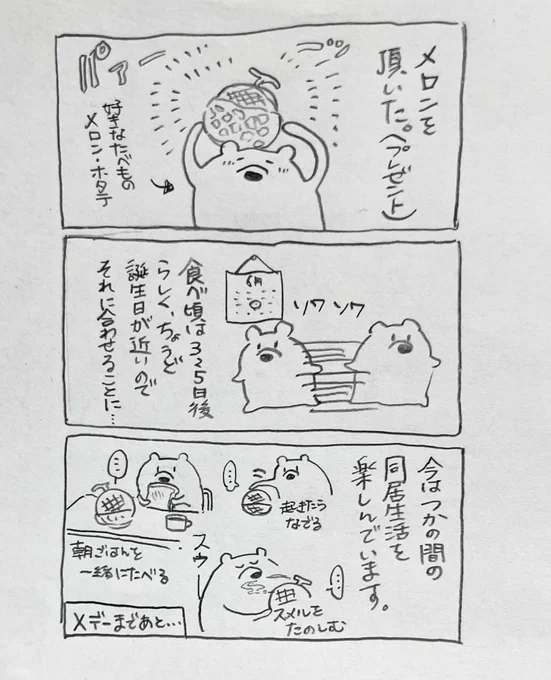 メロンを
頂いた。(プレゼント)
パァーーッ
好きなたべもの
メロン・ホタテ
6月
ソワソワ
食べ頃は3~5日後
らしく、ちょうど
誕生日が近いので
それに合わせることに…
今はつかの間の
同居生活を
楽しんでいます。
…
起きたら
なでる
…
朝ごはんを
一緒にたべる
スゥ
…
スメルを
たのしむ
Xデーまであと…